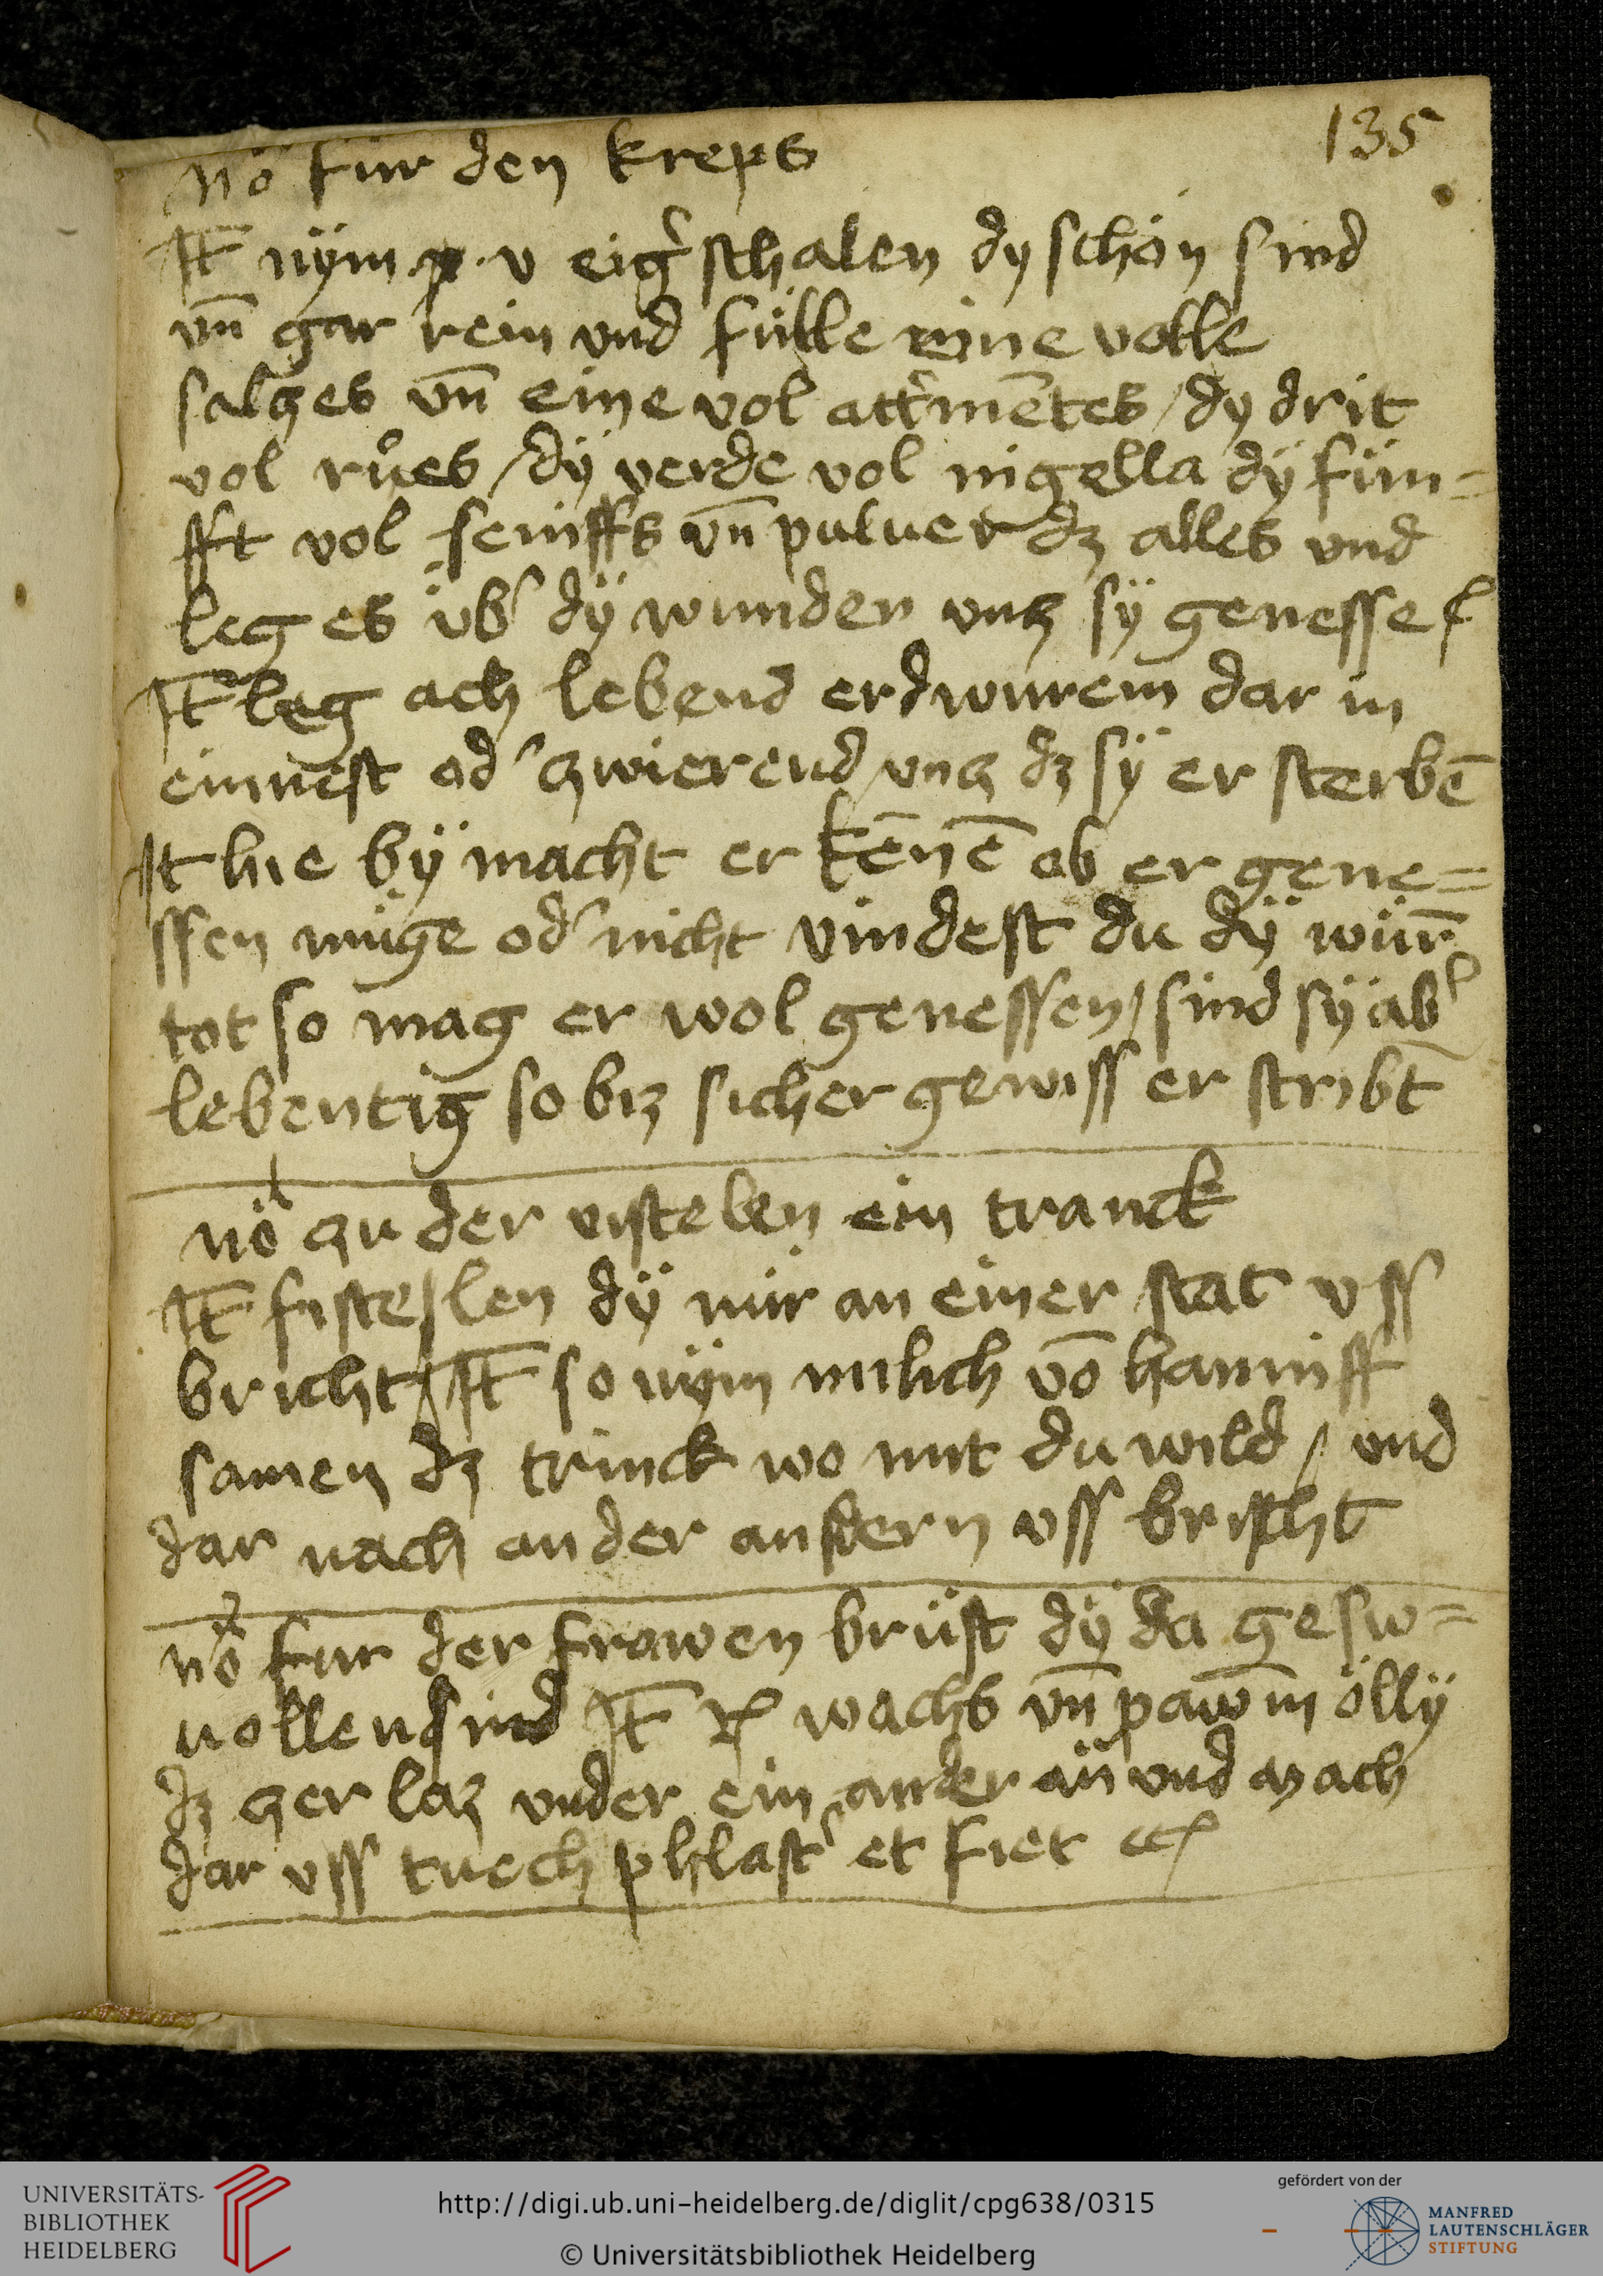 135
nō für den kreps
It nÿm .v eigʼschalen dy schön sind
vn̄ gar rein vnd fülle eine volle
salczes vn̄ eine vol attʼmētes / dy drit
vol růes / dÿ verde vol nigella dÿ fün=
fft vol seniffs vn̄ puluer dz alles vnd
leg es übʼ dÿ wunden vncz sÿ genesse
It leg ach lebend erdwurem dar in
einnest odʼ czwierend / vncz dz sÿ er sterbē
It hie bÿ macht er kēnē ob er gene=
ssen müge odʼ nicht vindest du dÿ würm̄
tot so mag er wol genessen / sind sÿ abʼ
lebentig so biz sicher gewiss er stribt
nō czu der vistelen ein tranck
It fiste/len dÿ nür an einer stat vss
bricht / It so nÿm milich vō hanniff
samen dz trinck wo mit du wild / vnd
dar nach an der andern vss bricht
nō fur der frowen brüst dÿ da gesw=
ollen sind It Rx wachs vn̄ pawm ölly
dz czer laz vnder ein ander an̄ vnd mach
dar vss tuech phlastʼ et fiet
UNIVERSITÄTS-
BIBLIOTHEK
HEIDELBERG
http://digi.ub.uni-heidelberg.de/diglit/cpg638/0315
© Universitätsbibliothek Heidelberg
gefördert von der
MANFRED
LAUTENSCHLÄGER
STIFTUNG